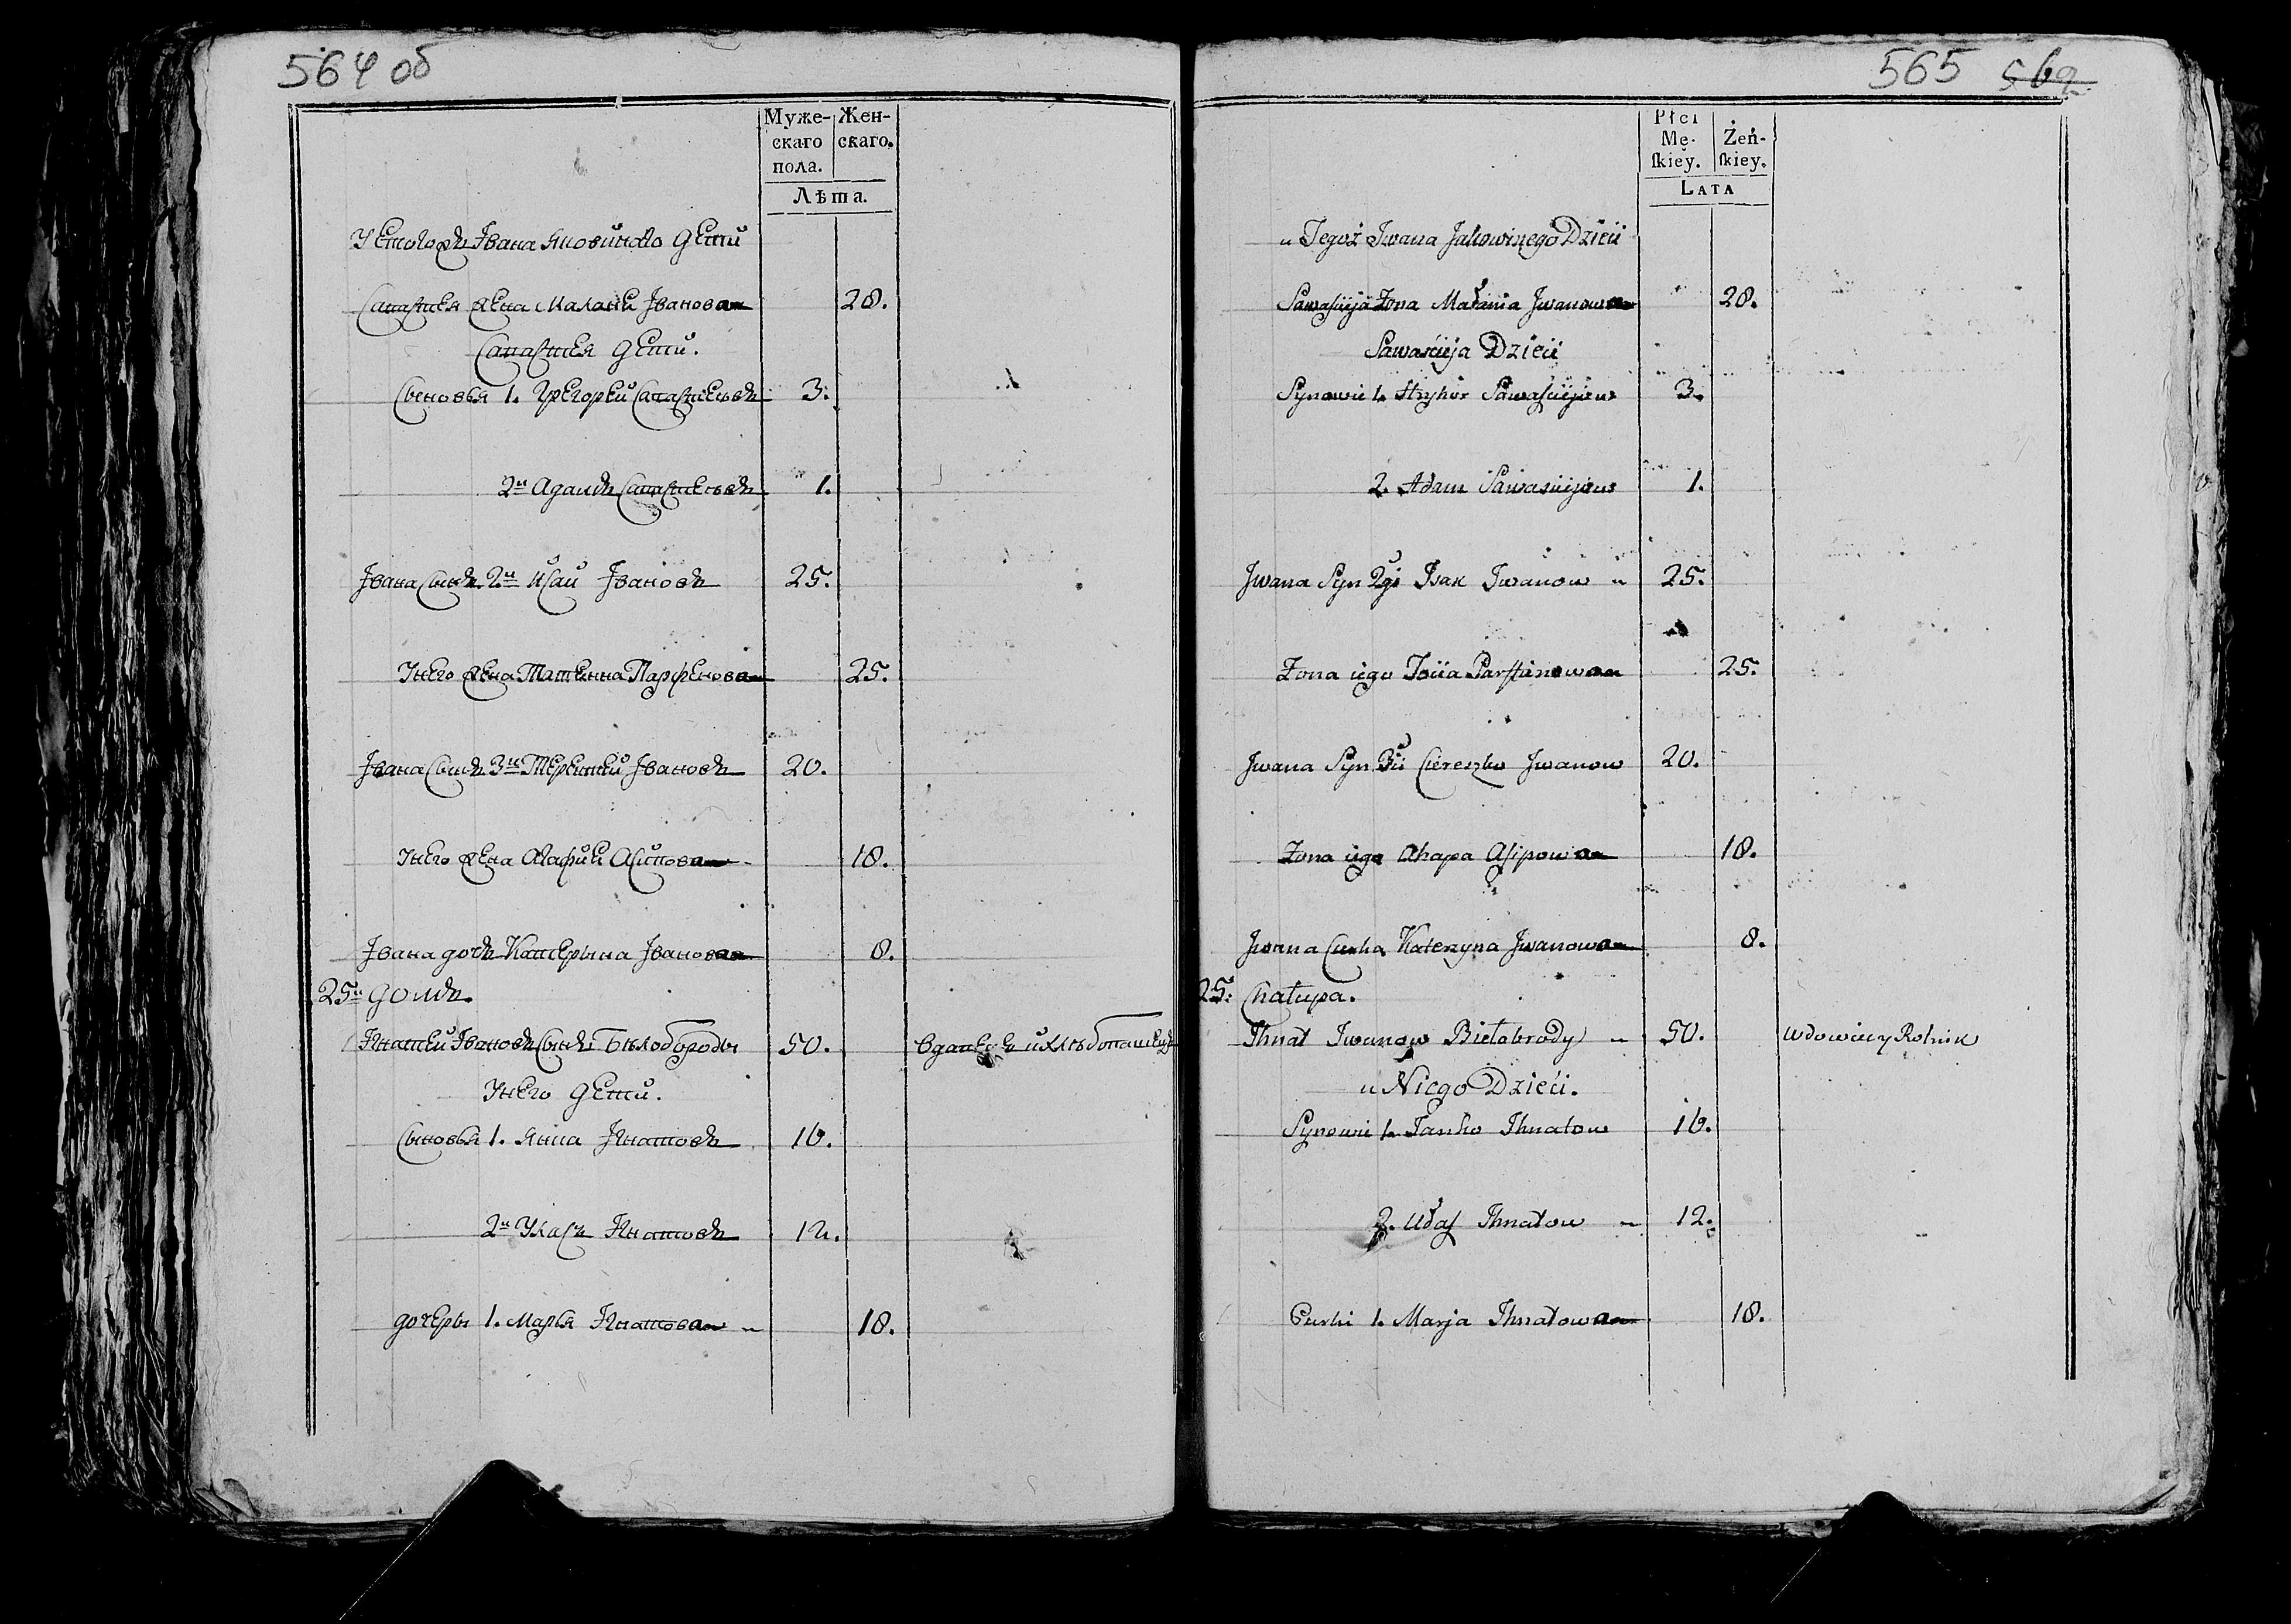 564 об
Муже-
скаго
пола.
Жен-
скаго.
Лѣта.
У тогожъ Ивана Яковинаго дети
Савастея жена Малания Иванова 28.
Савастея дети.
Сыновья 1. Грегорей Савастеевъ 3.
2й Адамъ Савастеевъ 1.
Ивана сынъ 2й Исай Ивановъ 25.
У него жена Татиянна Парфенова 25.
Ивана сынъ 3й Терентей Ивановъ 20.
У него жена Агафия Асипова 18.
Ивана дочь Катерына Иванова 8.
25й домъ.
Игнатей Ивановъ сынъ Белобороды 50. вдавецъ и хлебопашецъ
У него дети.
Сыновья 1. Янка Игнатовъ 16.
2й Уласъ Игнатовъ 12.
дочеры 1. Марья Игнатова 18.
565 569
Płci
Mę-
skiey.
Żeń-
skiey.
LATA
u Tegoż Iwana Jakowinego Dzieci
Sawaścija Żona Małania Iwanowa 28.
Sawaścija Dzieci
Synowie 1. Hryhor Sawaścijew 3.
2. Adam Sawaścijew 1.
Iwana Syn 2gi Isak Iwanow 25.
Żona iego Parfianowa 25.
Iwana Syn 3ci Cereszko Iwanow 20.
Żona iego Ahapa Asipowa 18.
Iwana Curka Katerzyna Iwanowa 8.
25. Chałupa.
Ihnat Iwanow Biełobrody 50. wdowiec y Rolnik
u Niego Dzieci.
Synowie 1. Janko Ihnatow 16.
2. Ułas Ihnatow 12.
Curki 1. Marja Ihnatowa 18.